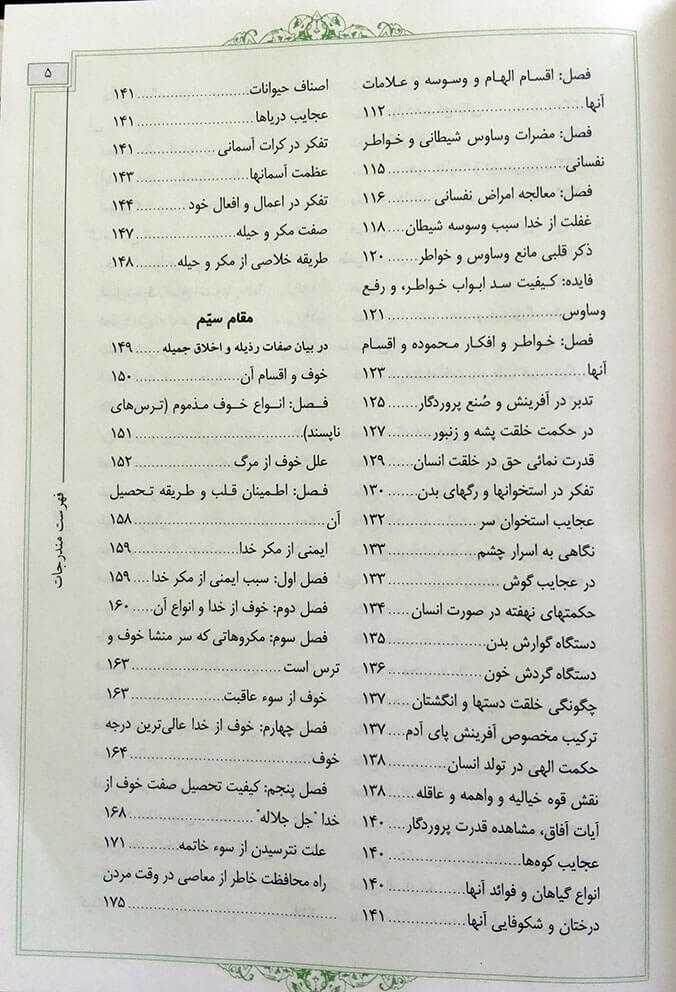 ۵
فصل: اقسام الهام و وسوسه و علامات
آنها............................۱۱۲
فصل: مضرات وساوس شیطانی و خواطر
نفسانی............................۱۱۵
فصل: معالجه امراض نفسانی ..........۱۱۶
غفلت از خدا سبب وسوسه شیطان....۱۱۸
ذکر قلبی مانع وساوس و خواطر........۱۲۰
فایده: کیفیت سد ابواب خواطر، و رفع
وساوس............................۱۲۱
فصل: خواطر و افکار محموده و اقسام
آنها............................۱۲۳
تدبر در آفرینش و صُنع پروردگار.......۱۲۵
در حکمت خلقت پشه و زنبور..........۱۲۷
قدرت نمائی حق در خلقت انسان......۱۲۹
تفکر در استخوانها و رگهای بدن.......۱۳۰
عجایب استخوان سر ..................۱۳۲
نگاهی به اسرار چشم..................۱۳۳
در عجایب گوش ......................۱۳۳
حکمتهای نهفته در صورت انسان .....۱۳۴
دستگاه گوارش بدن..................۱۳۵
دستگاه گردش خون..................۱۳۶
چگونگی خلقت دستها و انگشتان.....۱۳۷
ترکیب مخصوص آفرینش پای آدم....۱۳۷
حکمت الهی در تولد انسان ..........۱۳۸
نقش قوه خیالیه و واهمه و عاقله......۱۳۸
آیات آفاق، مشاهده قدرت پروردگار....۱۴۰
عجایب کوه‌ها........................۱۴۰
انواع گیاهان و فوائد آنها..............۱۴۰
درختان و شکوفایی آنها................۱۴۱
اصناف حیوانات......................۱۴۱
عجایب دریاها........................۱۴۱
تفکر در کرات آسمانی ................۱۴۱
عظمت آسمانها......................۱۴۳
تفکر در اعمال و افعال خود ..........۱۴۴
صفت مکر و حیله....................۱۴۷
طریقه خلاصی از مکر و حیله..........۱۴۸
مقام سیّم
در بیان صفات رذیله و اخلاق جمیله ......۱۴۹
خوف و اقسام آن....................۱۵۰
فصل: انواع خوف مذموم (ترس‌های
ناپسند)............................۱۵۱
علل خوف از مرگ ..................۱۵۲
فصل: اطمینان قلب و طریقه تحصیل
آن................................۱۵۸
ایمنی از مکر خدا....................۱۵۹
فصل اول: سبب ایمنی از مکر خدا....۱۵۹
فصل دوم: خوف از خدا و انواع آن.....۱۶۰
فصل سوم: مکروهاتی که سر منشا خوف و
ترس است............................۱۶۳
خوف از سوء عاقبت..................۱۶۳
فصل چهارم: خوف از خدا عالی‌ترین درجه
خوف................................۱۶۴
فصل پنجم: کیفیت تحصیل صفت خوف از
خدا "جل جلاله"......................۱۶۸
علت نترسیدن از سوء خاتمه..........۱۷۱
راه محافظت خاطر از معاصی در وقت مردن
................................۱۷۵
فهرست مندرجات